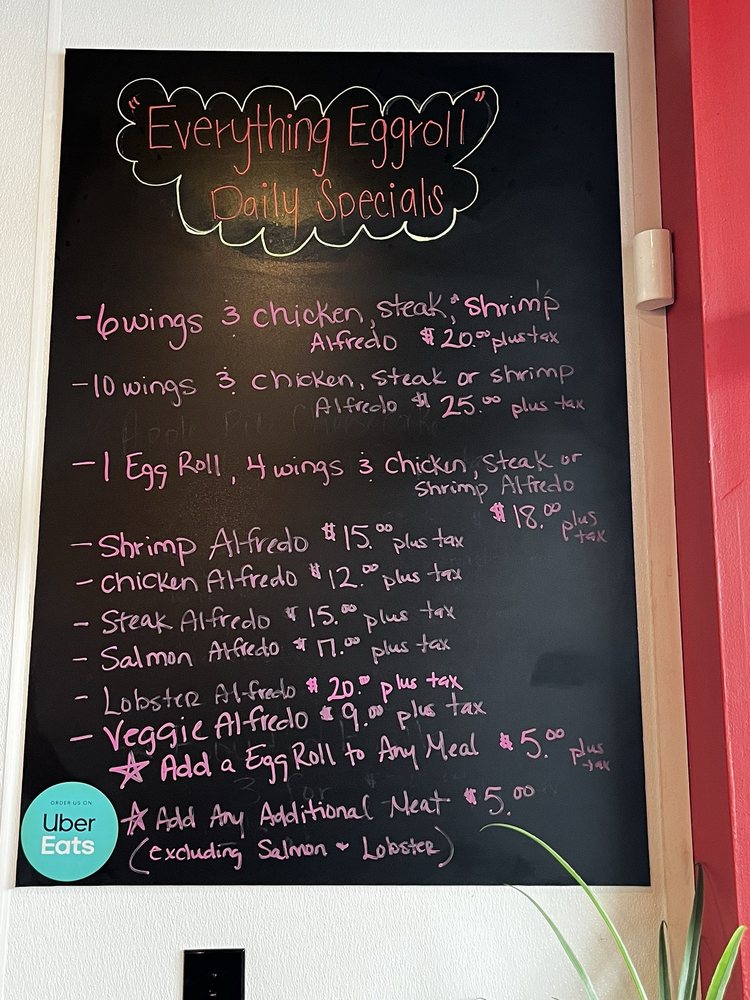 "Everything Eggroll"
Daily Specials
-6 wings & chicken, steak, shrimp
Alfredo $20.00 plus tax
-10 wings & chicken, steak or shrimp
Alfredo $25.00 plus tax
-1 Egg Roll, 4 wings & chicken, steak or
shrimp Alfredo
$18.00 plus
tax
- Shrimp Alfredo $15.00 plus tax
- chicken Alfredo $12.00 plus tax
- Steak Alfredo $15.00 plus tax
- Salmon Alfredo $17.00 plus tax
- Lobster Alfredo $20.00 plus tax
- Veggie Alfredo $9.00 plus tax
☆ Add a Egg Roll to Any Meal $5.00 plus
tax
☆ Add Any Additional Meat $5.00
(excluding Salmon & Lobster)
ORDER US ON
Uber
Eats